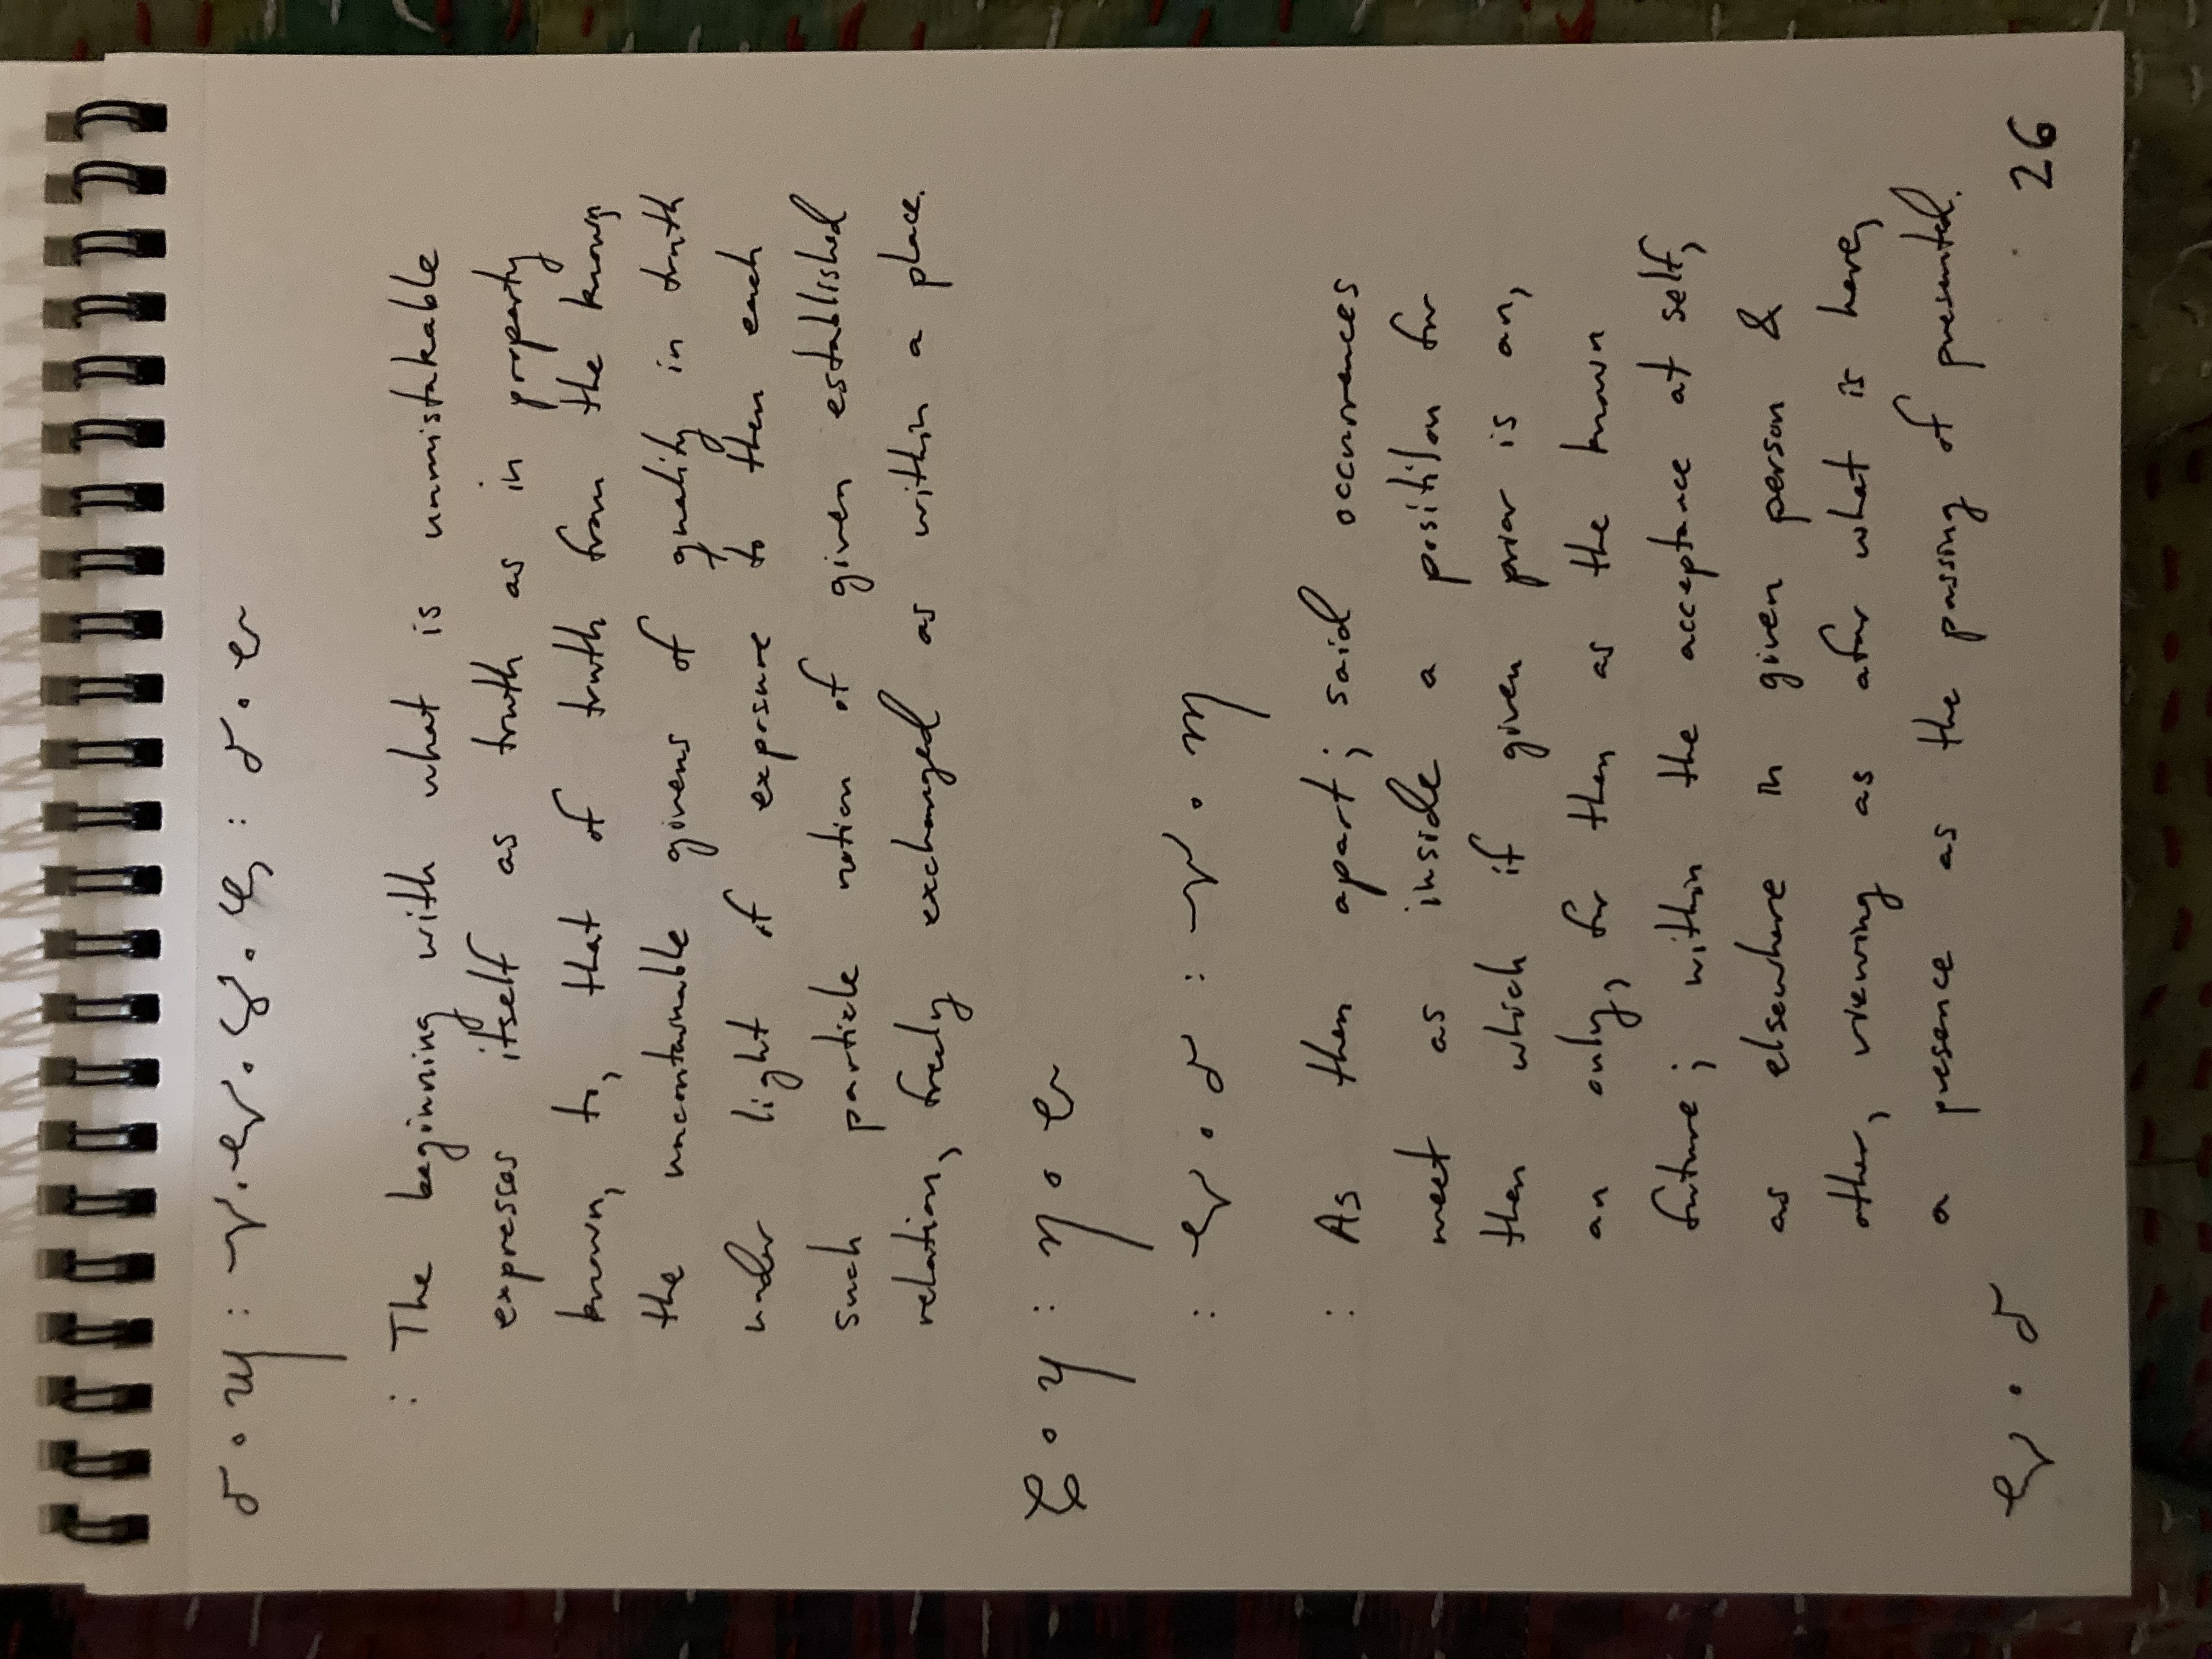 : The beginning with what is unmistakable
expresses itself as truth as in property
known, to, that of truth from the known
the uncontainable givens of quality in truth
under light if exposure to then each
such particle notion of given established
relation, freely exchanged as within a place.
: As then apart; said occurrences
meet as inside a position for
then which if given prior is on,
an only, for then as the known
future; within the acceptance at self,
as elsewhere in given person &
other, viewing as afar what is here,
a presence as the passing of presented.
26